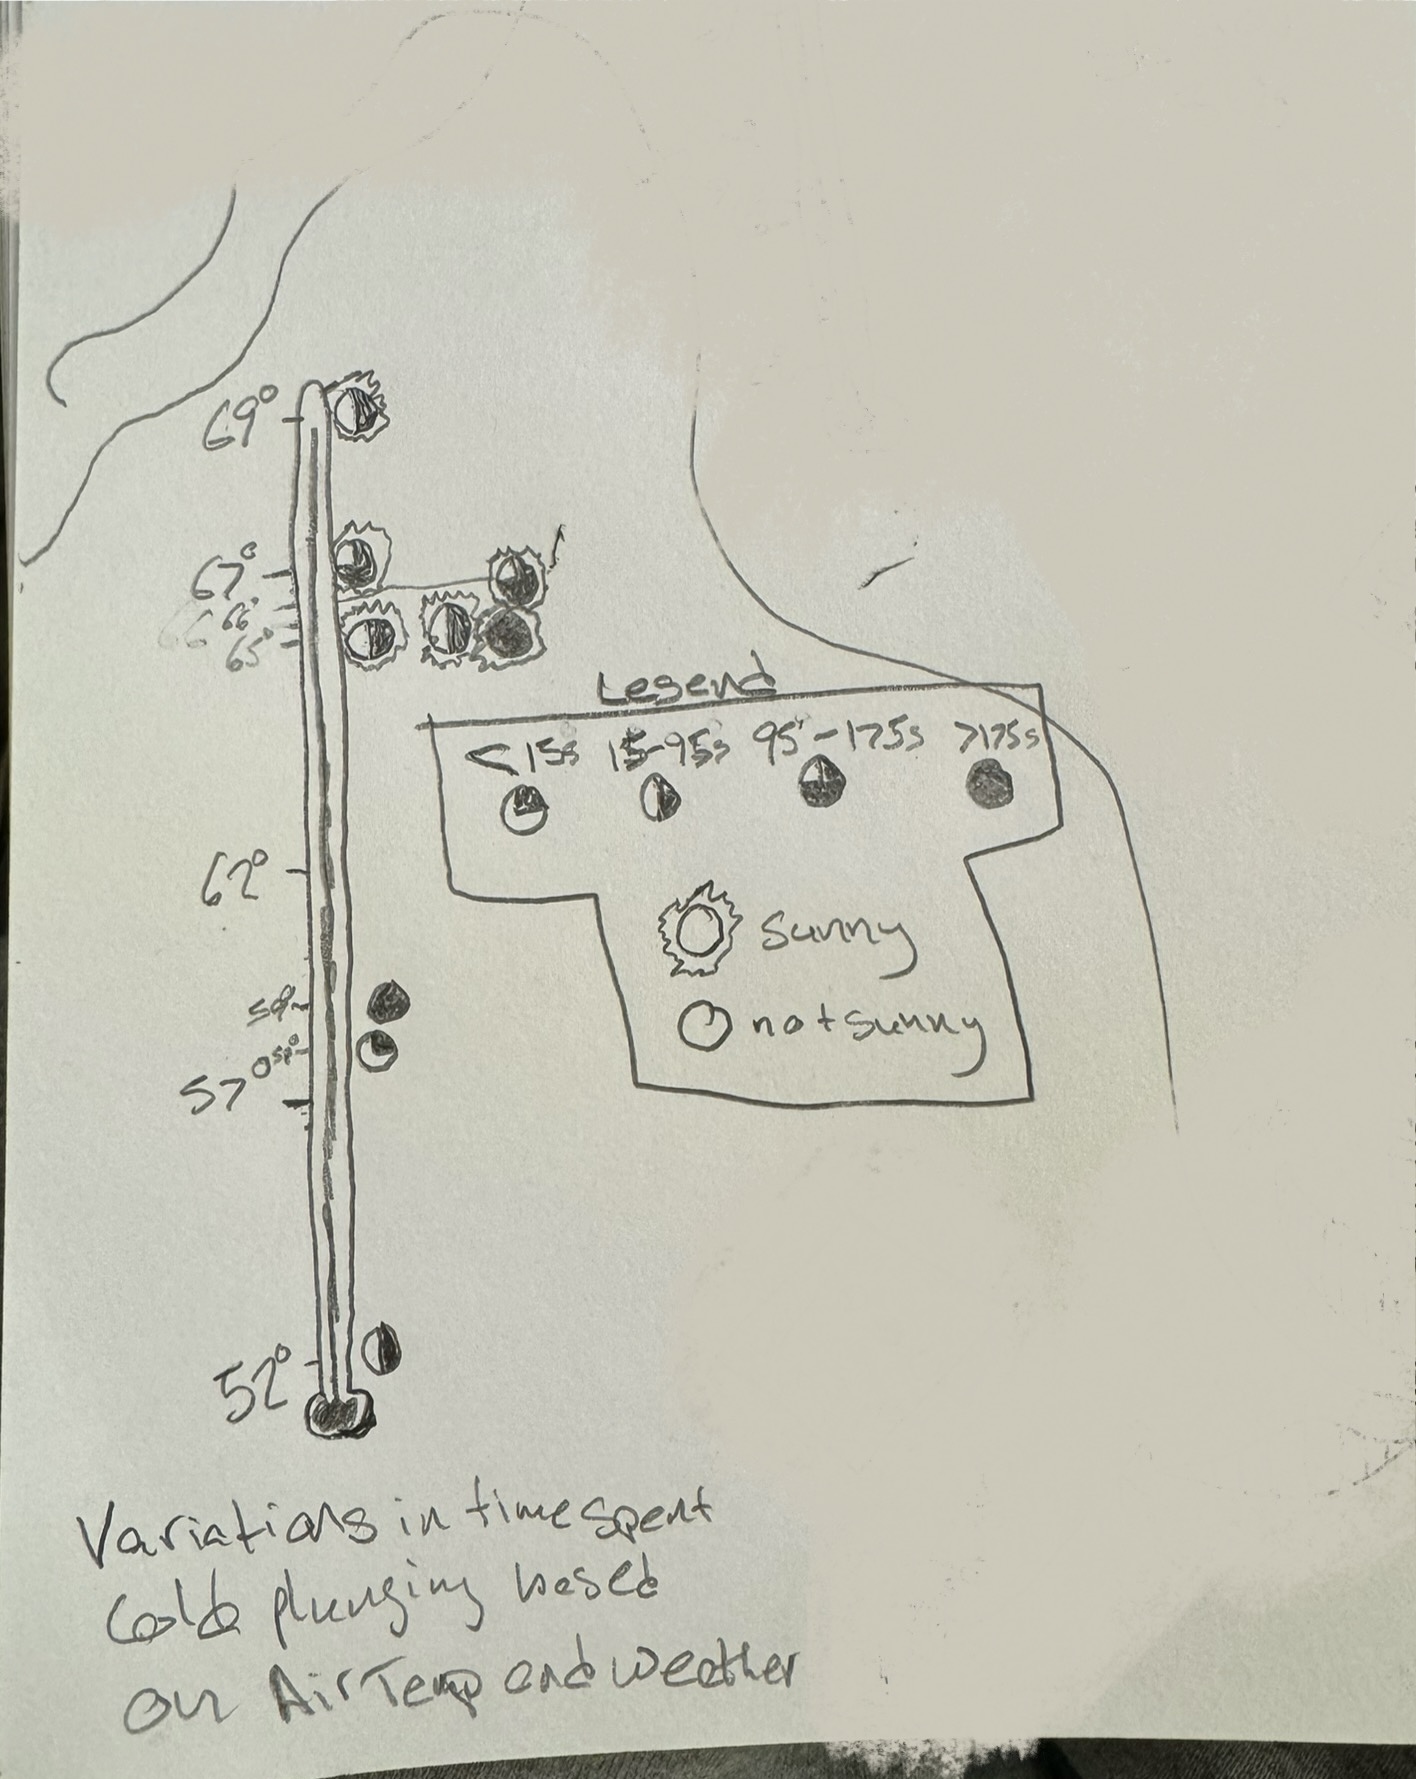 69°
67°
66°
65°
Legend
<15s 15-95s 95-175s >175s
62°
sunny
59°
58°
not sunny
57°
52°
Variations in time spent
Cold plunging based
on Air Temp and weather